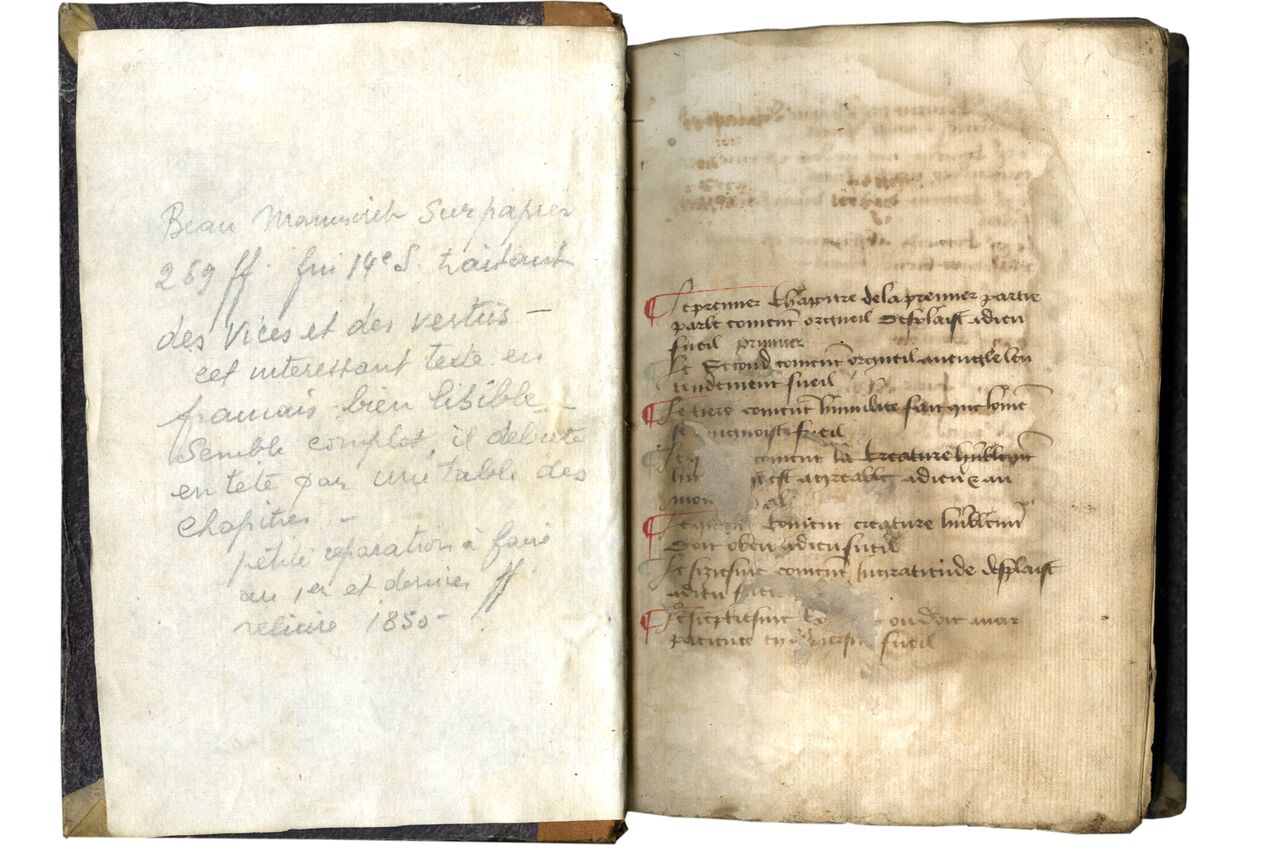 Beau Manuscrit sur papier
269 ff. fin 14e S. traitant
des vices et des vertus -
cet interessant texte en
francais bien lisible -
Semble complet, il debute
en tete par une table des
chapitres -
petite reparation à faire
au 1er et dernier ff
reliure 1850 -
Le premier chapitre de la premier partie
parle coment orgueil desplaist a dieu
fueil premier
Le Second coment orgueil aveugle len
tendement fueil
Le tiers coment humilite fait que lome
se fueil
coment la creature
est agreable a dieu & au
mon
coment creature
Doit obeir a dieu fueil
Le siziesme coment Ingratitude desplaist
a dieu
Le septiesme on doit avoir
patience fueil